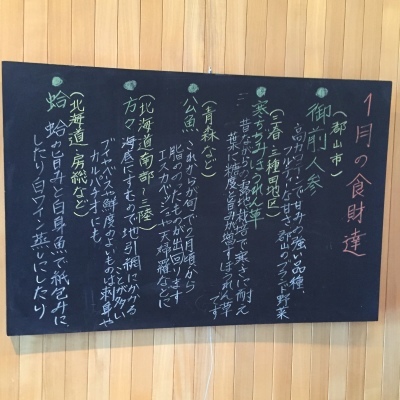 1月の食財達
(郡山市)
御前人参
高カロテンで甘みの強い品種、
フルーティな甘さ 郡山のブランド野菜
(三春・三種田地区)
寒ちぢみほうれん草
昔ながらの露地栽培で寒さに耐え
葉に糖度と旨みが増すほうれん草
です
(青森など)
公魚 これからが旬で2月頃から
脂ののったものが出回ります
エスカベッシュや天婦羅などに
(北海道南部〜三陸)
方々 海底にすむもので地引網にかかる
ことが多い
ブイヤベスや鮮度のよいものは刺身や
カルパッチオにも
(北海道・房総など)
蛤 蛤の旨みと白身魚で紙包みに
したり白ワイン蒸しにしたり